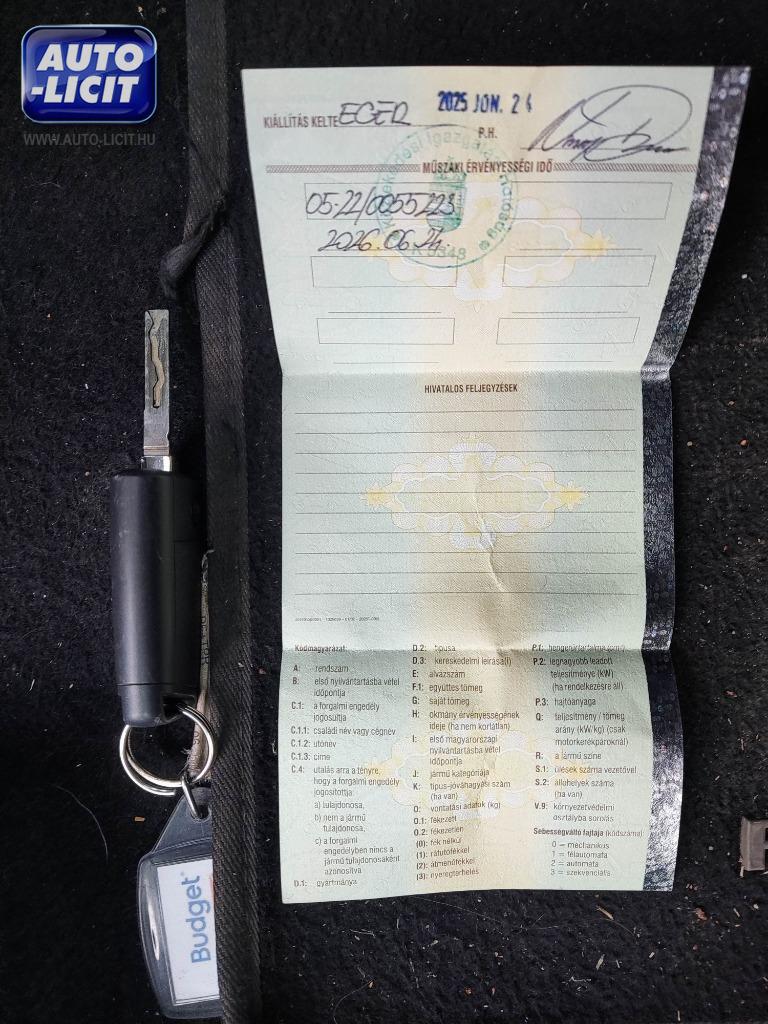 AUTO
-LICIT
WWW.AUTO-LICIT.HU
KIÁLLÍTÁS KELTE EGER 2025 JÚN. 24
P.H.
MŰSZAKI ÉRVÉNYESSÉGI IDŐ
05-22/0055223
2026.06.24.
HIVATALOS FELJEGYZÉSEK
Kódmagyarázat:
A: rendszám
B: első nyilvántartásba vétel
időpontja
C.1: a forgalmi engedély
jogosultja
C.1.1: családi név vagy cégnév
C.1.2: utónév
C.1.3: címe
C.4: utalás arra a tényre,
hogy a forgalmi engedély
jogosítottja:
a) tulajdonosa,
b) nem a jármű
tulajdonosa,
c) a forgalmi
engedélyben nincs a
jármű tulajdonosaként
azonosítva
D.1: gyártmánya
D.2: típusa
D.3: kereskedelmi leírása(i)
E: alvázszám
F.1: együttes tömeg
G: saját tömeg
H: okmány érvényességének
ideje (ha nem korlátlan)
I: első magyarországi
nyilvántartásba vétel
időpontja
J: jármű kategóriája
K: típus-jóváhagyási szám
(ha van)
O: vontatási adatok (kg)
O.1: fékezett
O.2: fékezetlen
(0): fék nélkül
(1): ráfutófékkel
(2): átmenőfékkel
(3): nyeregterhelés
P.1: hengerűrtartalma (cm³)
P.2: legnagyobb leadott
teljesítménye (kW)
(ha rendelkezésre áll)
P.3: hajtóanyaga
Q: teljesítmény / tömeg
arány (kW/kg) (csak
motorkerékpároknál)
R: a jármű színe
S.1: ülések száma vezetővel
S.2: állóhelyek száma
(ha van)
V.9: környezetvédelmi
osztályba sorolás
Sebességváltó fajtája (kódszáma):
0 = mechanikus
1 = félautomata
2 = automata
3 = szekvenciális
Budget